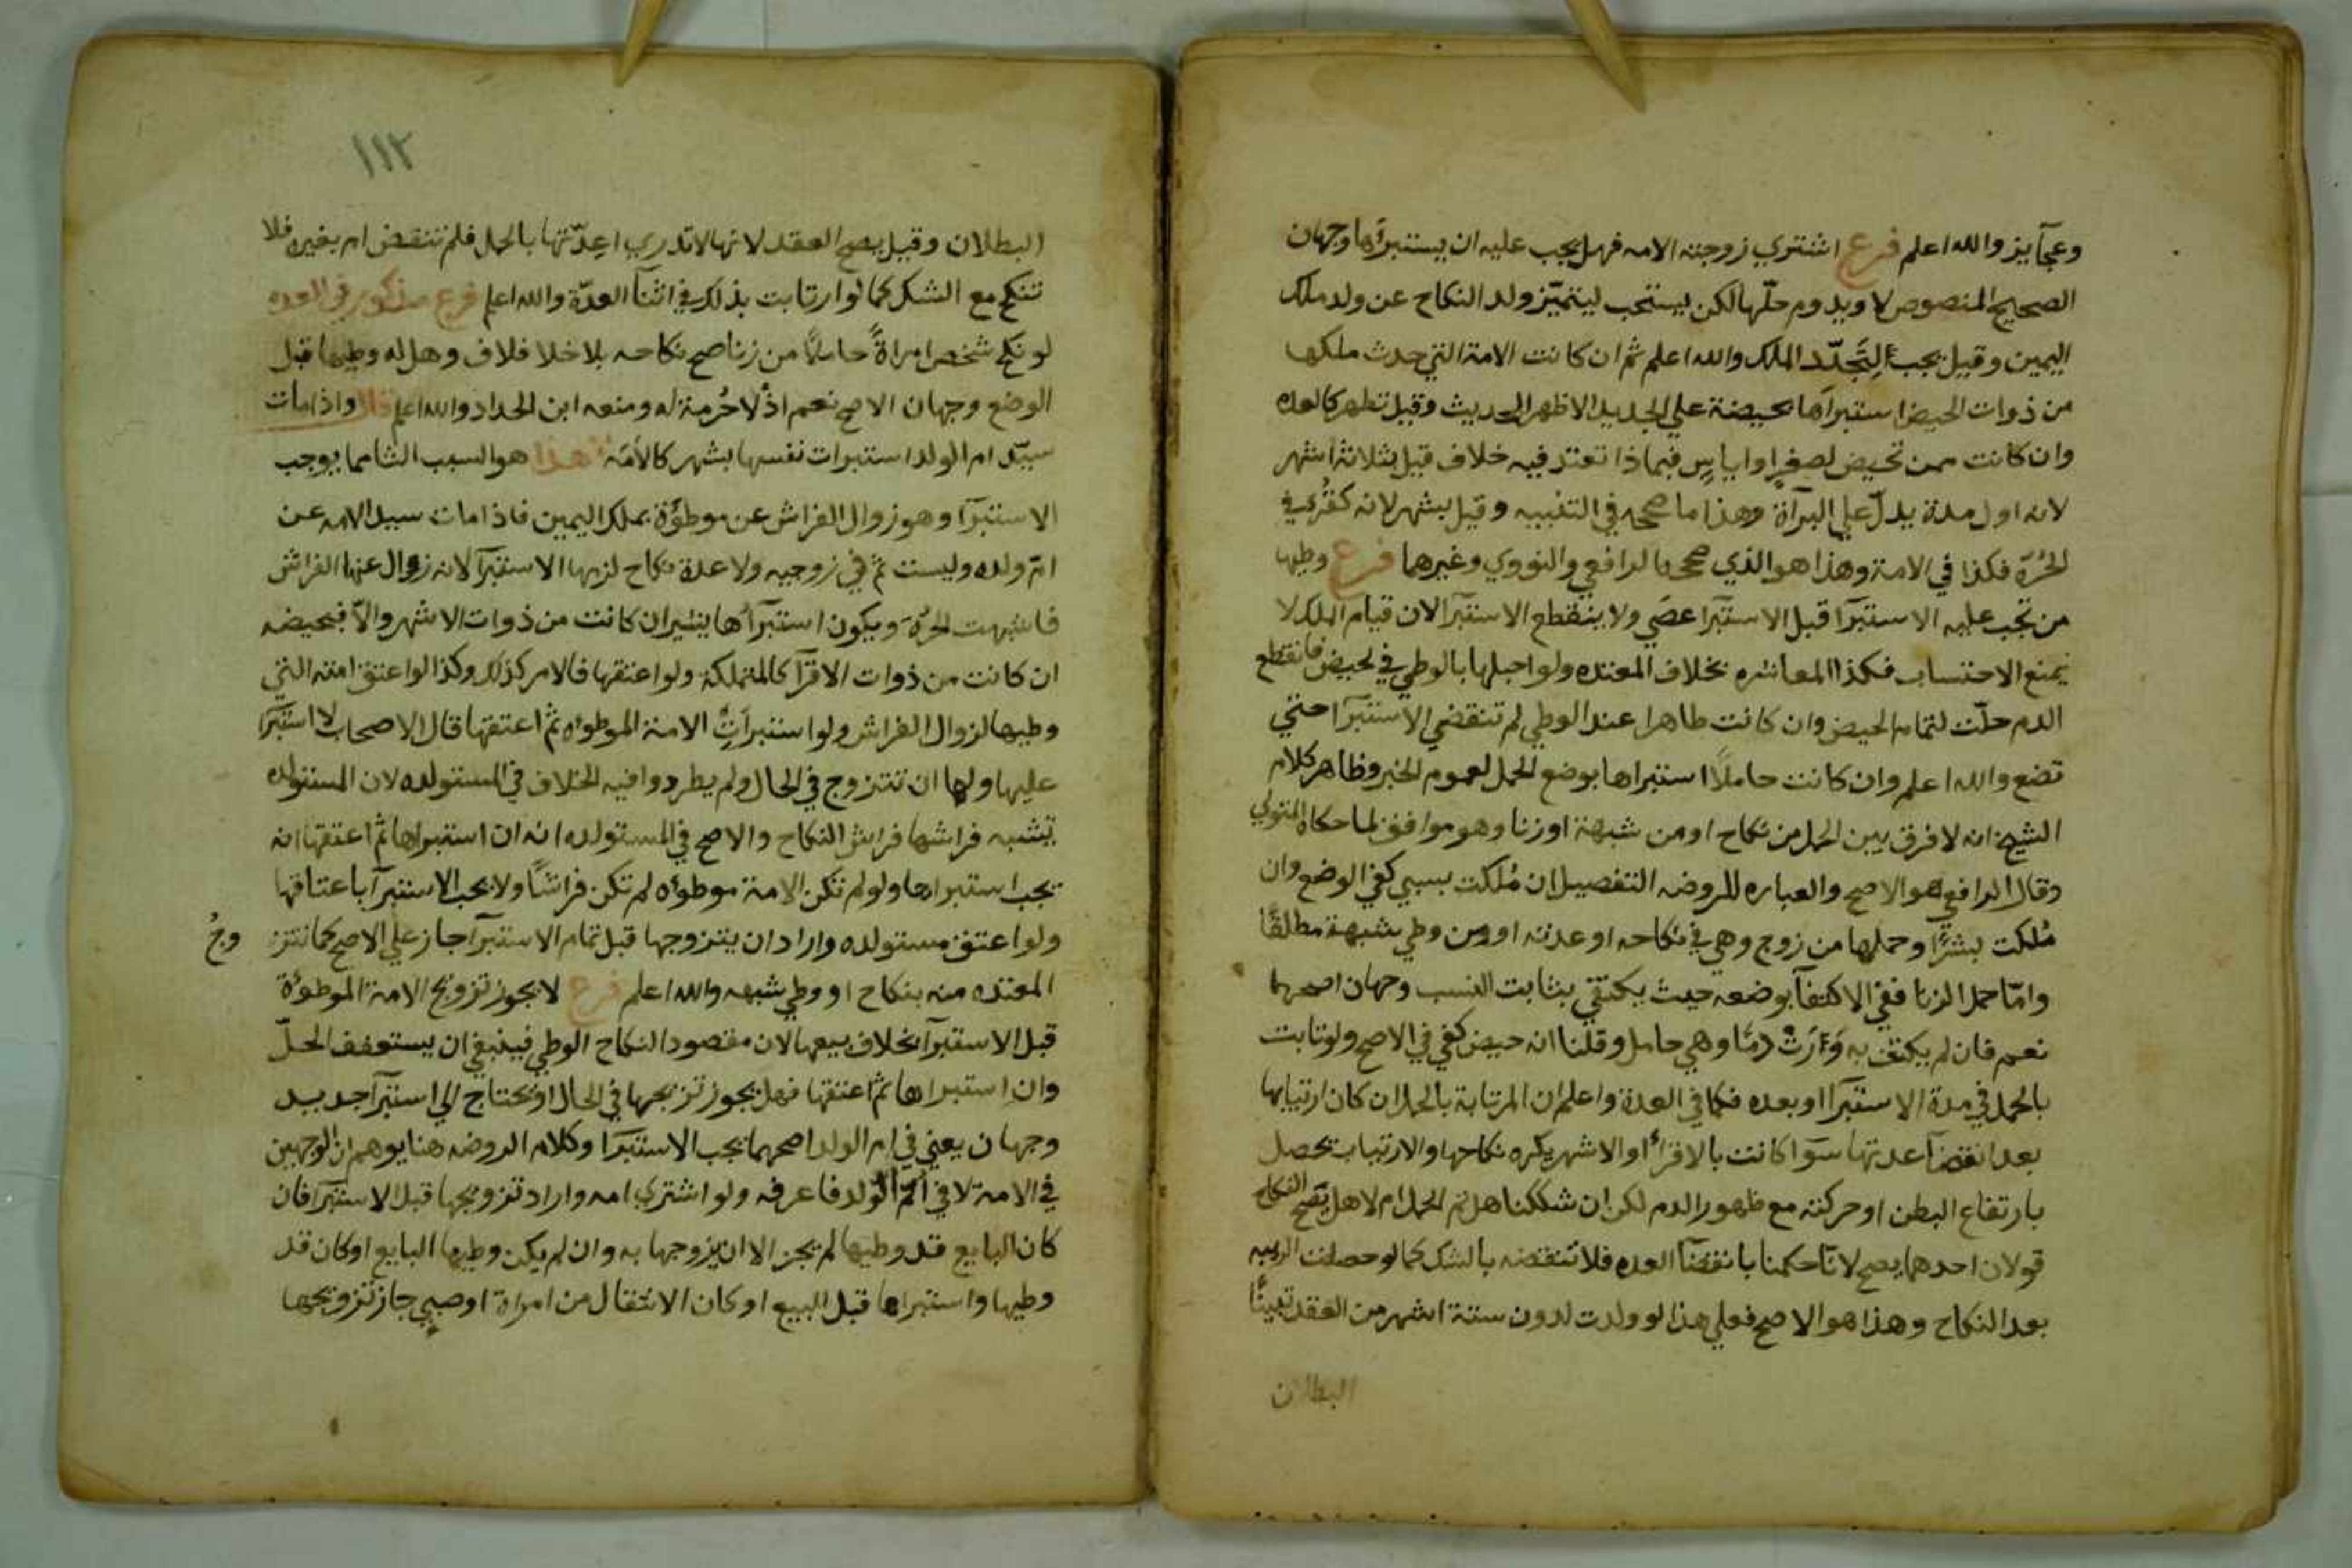 وعجآيز والله اعلم فرع اشتري زوجته الامه فهل يجب عليه ان يستبرأها وجهان
الصحيح المنصوص لا ويدوم حلّها لكن يستحب ليتميّز ولد النكاح عن ولد ملك
اليمين وقيل يجب لِتَجدّد الملك والله اعلم ثم ان كانت الامة التي حدث ملكها
من ذوات الحيض استبرآها بحيضة علي الجديد الاظهر الحديث وقيل تطهر كالعده
وان كانت ممن تحيض لصغر او اياسٍ فبماذا تعتد فيه خلاف قيل بثلاثة اشهر
لانه اول مدة يدلّ علي البرآة وهذا ما صححه في التنبيه وقيل بشهر لانه كقُرء في
الحُرّة فكذا في الامة وهذا هو الذي صححه الرافعي والنووي وغيرهما فرع وطيها
من تجب عليه الاستبرآ قبل الاستبرآ عصَي ولا ينقطع الاستبرآ لان قيام الملك لا
يمنع الاحتساب فكذا المعاشره بخلاف المعتده ولو احبلها بالوطي في الحيض فانقطع
الدم حلّت لتمام الحيض وان كانت طاهرا عند الوطي لم تنقضي الاستبرآ حتي
تضع والله اعلم وان كانت حاملاً استبراها بوضع الحمل لعموم الخبر وظاهر كلام
الشيخ انه لا فرق بين الحمل من نكاح او من شبهة او زنا وهو موافق لما حكاه المتولي
وقال الرافعي هو الاصح والعباره للروضه التفصيل ان مُلكت بسبي كفي الوضع وان
مُلكت بشرًا وحملها من زوج وهي في نكاحه او عدته او من وطي شبهة مطلقًا
وامّا حمل الزنا ففي الاكتفآ بوضعه حيث يكتفي بثابت النسب وجهان اصحهما
نعم فان لم يكتف به وَرَأَتْ دمًا وهي حامل وقلنا انه حيض كفي في الاصح ولو تابت
بالحمل في مدة الاستبرآ او بعده فكما في العدة واعلم ان المرتابة بالحمل ان كان ارتيابها
بعد انقضآ عدتها سَوآ كانت بالاقرأ او الاشهر يكره نكاحها والارتياب يحصل
بارتفاع البطن او حركته مع ظهور الدم لكن ان شككنا هل ثم الحمل ام لا هل يصح النكاح
قولان احدهما يصح لانّا حكمنا بانقضآ العده فلا تنقضه بالشك كما لو حصلت الريبه
بعد النكاح وهذا هو الاصح فعلي هذا لو ولدت لدون ستة اشهر من العقد تعينًا
البطلان
١١٢
البطلان وقيل يصح العقد لانها لا تدري اعِدّتها بالحمل فلم تنقض ام بغيره فلا
تنكح مع الشك كما لو ارتابت بذلك في اثنآ العدّة والله اعلم فرع مذكور في العده
لو نكح شخص امراةً حاملاً من زنا صح نكاحه بلا خلا فلاف وهل له وطيها قبل
الوضع وجهان الاصح نعم اذ لا حُرمة له ومنعه ابن الحداد والله اعلم قال واذا مات
سيّد ام الولد استبرات نفسها بشهر كالأمَة هذا هو السبب الثا مما يوجب
الاستبرآ وهو زوال الفراش عن موطؤة بملك اليمين فاذا مات سيد الامه عن
امّ ولده وليست ثم في زوجيه ولا عدة نكاح لزمها الاستبرآ لانه زوال عنها الفراش
فاشبهت الحرّة ويكون استبرآها بشهر ان كانت من ذوات الاشهر والاّ فبحيضه
ان كانت من ذوات الاقرآ كالمتملكة ولو اعتقها فالامر كذلك وكذا لو اعتق امته التي
وطيها لزوال الفراش ولو استبرآتِ الامة الموطوه ثم اعتقها قال الاصحاب لا استبرآ
عليها ولها ان تتزوج في الحال ولم يطردوا فيه الخلاف في المستولده لان المستولده
يشبه فراشها فراش النكاح والاصح في المستولده انه ان استبراها ثم اعتقها انه
يجب استبراها ولو لم تكن الامة موطوه لم تكن فراشًا ولا يجب الاستبرآ باعتاقها
ولو اعتق مستولده واراد ان يتزوجها قبل تمام الاستبرآ جاز علي الاصح كما تتز وجُ
المعتده منه بنكاح او وطي شبهه والله اعلم فرع لا يجوز تزويج الامة الموطؤة
قبل الاستبرآ بخلاف بيعها لان مقصود النكاح الوطي فينبغي ان يستعقف الحلّ
وان استبراها ثم اعتقها فهل يجوز تزيجها في الحال او يحتاج الي استبرآ جديد
وجهان يعني في ام الولد اصحهما يجب الاستبرآ وكلام الروضه هنا يوهم ان الوجهين
في الامة لا في اُمّ الولد فاعرفه ولو اشتري امه واراد تزويجها قبل الاستبرآ فان
كان البايع قد وطيها لم يجز الا ان يزوجها به وان لم يكن وطيها البايع او كان قد
وطيها واستبراها قبل البيع او كان الانتقال من امراة او صبي جاز تزويجها